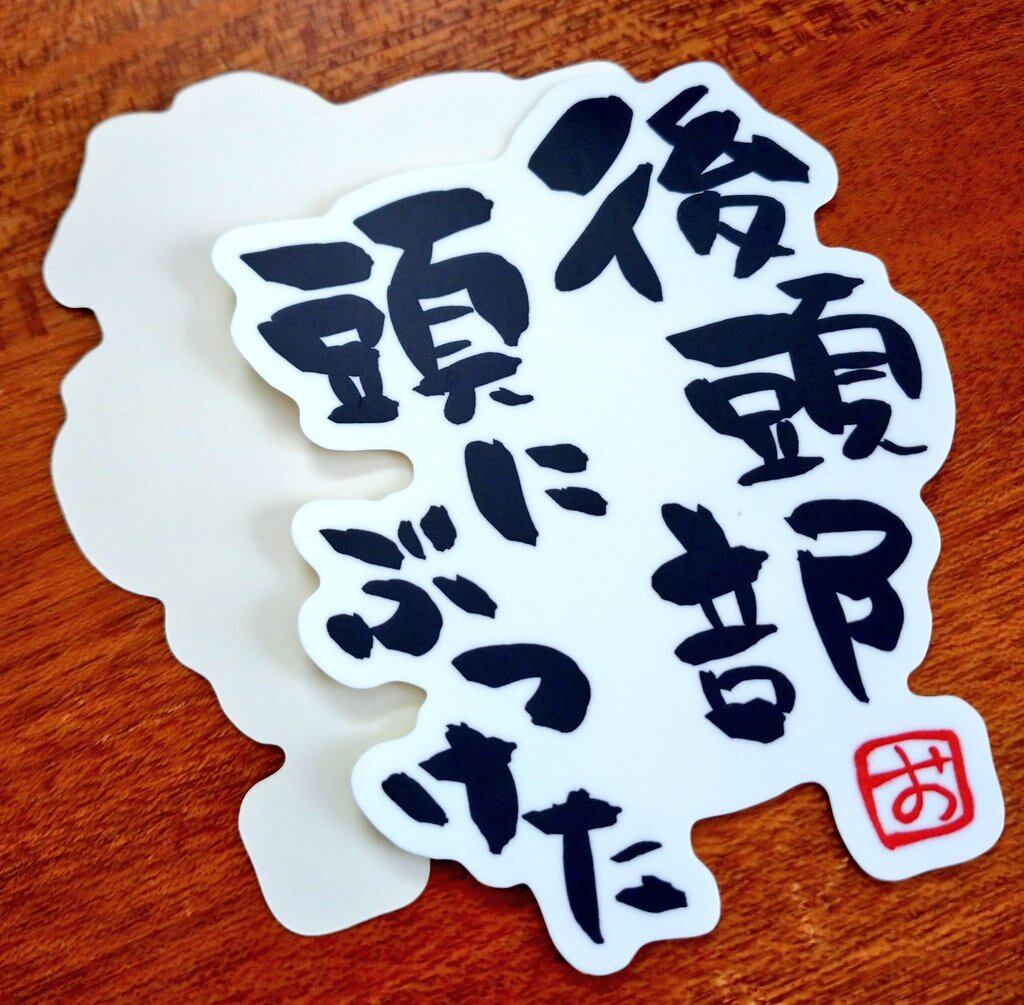 後頭部
頭にぶつけた
お